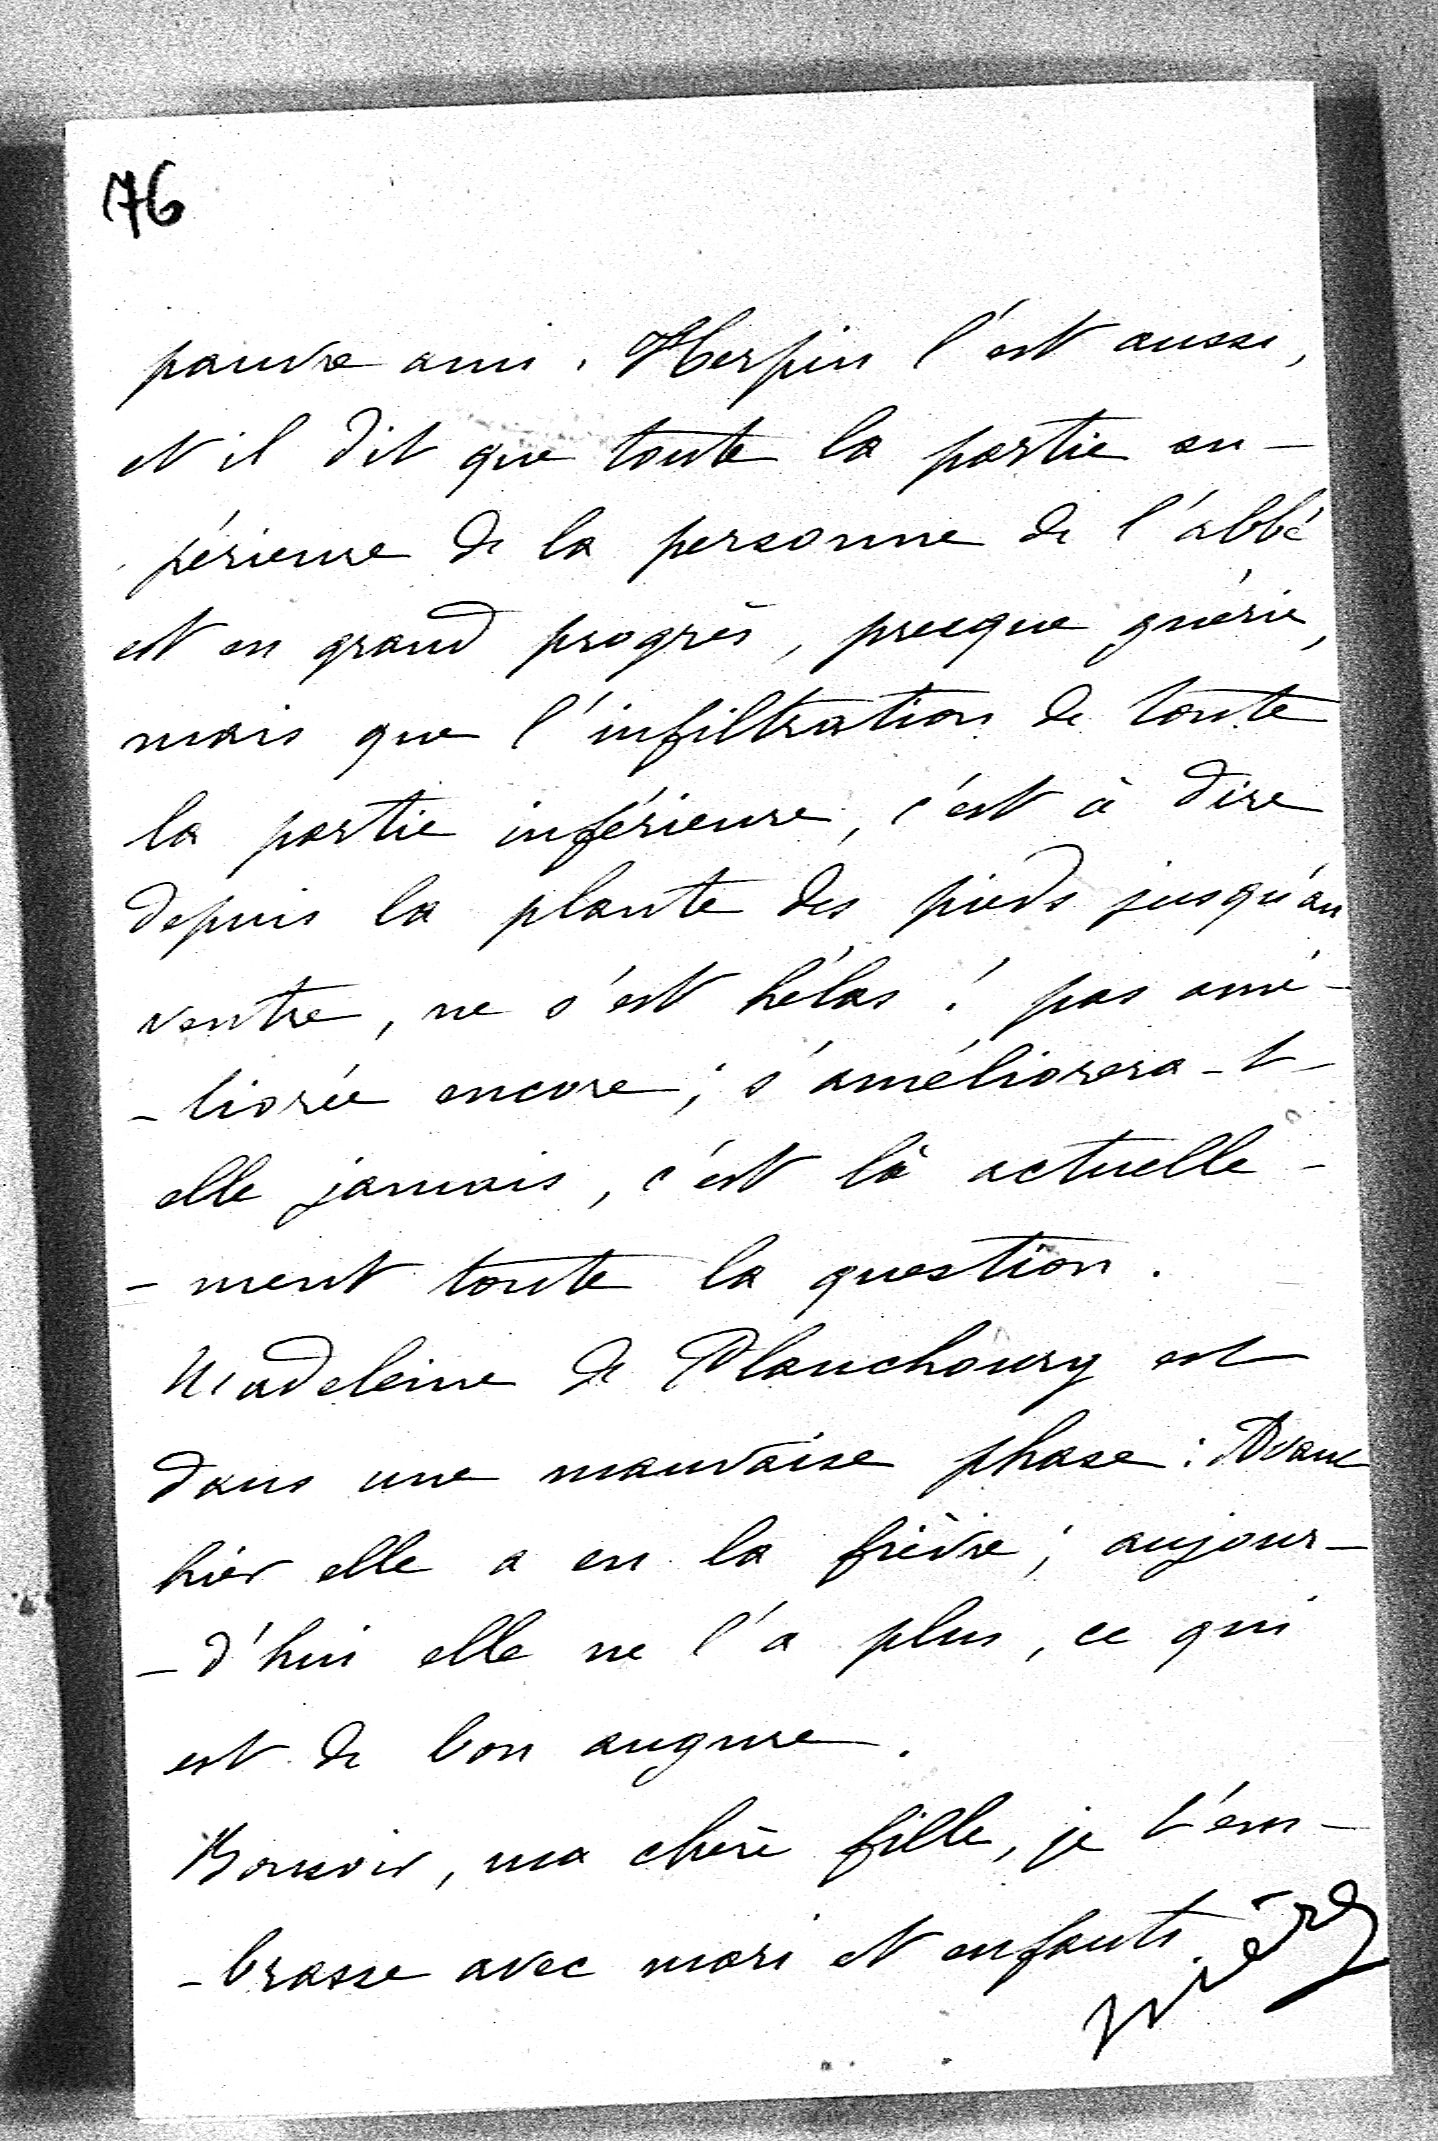 76
pauvre ami. Herpin l'est aussi,
et il dit que toute la partie su-
périeure de la personne de l'abbé
est en grand progrès, presque guérie,
mais que l'infiltration de toute
la partie inférieure, c'est à dire
depuis la plante des pieds jusqu'au
ventre, ne s'est hélas ! pas amé-
-liorée encore ; s'améliorera-t-
elle jamais, c'est là actuelle-
-ment toute la question.
Madeleine de Planchoury est
dans une mauvaise phase : Avant
hier elle a eu la fièvre ; aujour-
-d'hui elle ne l'a plus, ce qui
est de bon augure.
Bonsoir, ma chère fille, je t'em-
-brasse avec mari et enfants.
mère